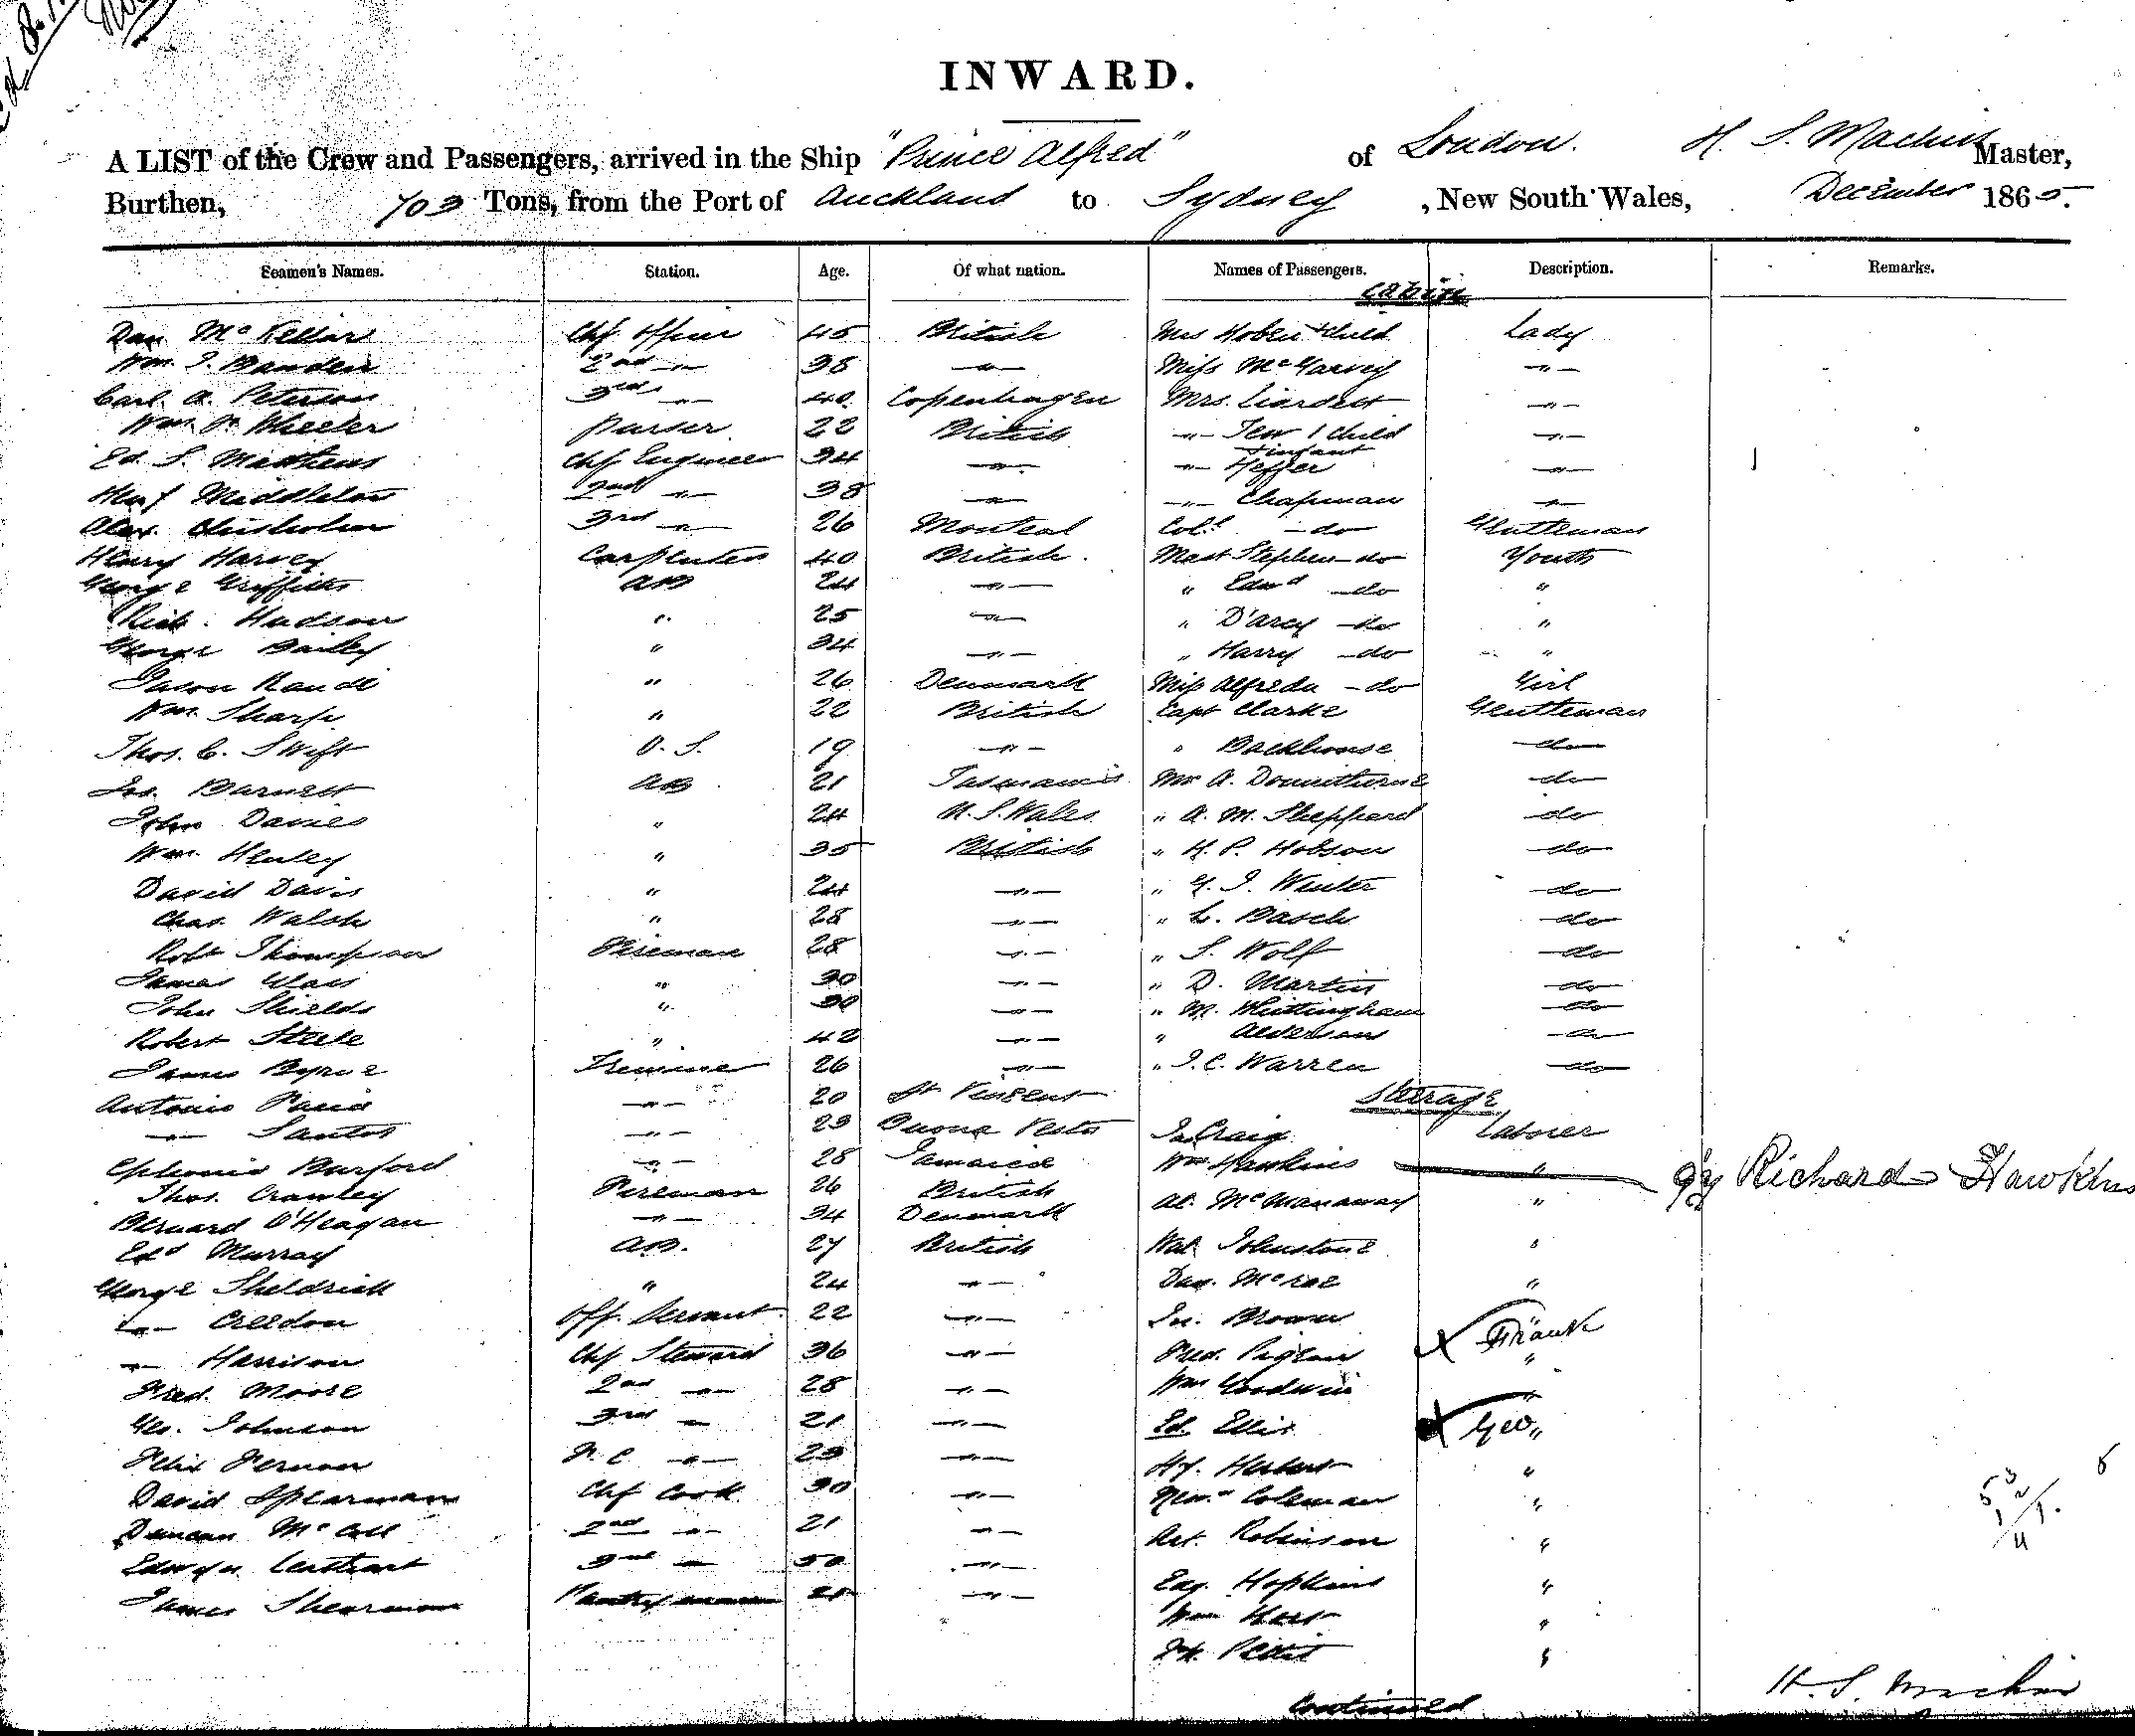 INWARD.
A LIST of the Crew and Passengers, arrived in the Ship "Prince Alfred" of London. H. S. Machin Master,
Burthen, 703 Tons, from the Port of Auckland to Sydney, New South Wales, December 1865.
Seamen's Names. Station. Age. Of what nation. Names of Passengers. Description. Remarks.
Cabin
Dan McKellar Chf Officer 45 British Mrs Hoben & child Lady
Wm. J. Banden 2nd -"- 38 -"- Miss McGarvey -"-
Carl A. Peterson 3rd -"- 40 Copenhagen Mrs. Liardett -"-
Wm. Wheeler Purser 22 British -"- Tew 1 child -"-
+ infant
Ed. S. Matthews Chf Engineer 34 -"- -"- Heffer -"-
Hen'y Middleton 2nd -"- 38 -"- -"- Chapman -"-
Alex. Chisholm 3rd -"- 26 Montreal Col. - do Gentleman
Henry Harvey Carpenter 40 British. Mast Stephen - do Youth
George Griffiths AB 24 -"- " Edwd - do "
Rich. Hudson " 25 -"- " D'arcy - do "
George Bailey " 34 -"- " Harry - do "
Jason Raude " 26 Denmark Miss Alfreda - do Girl
Wm. Sharp " 22 British Capt Clarke Gentleman
Thos. C. Swift O. S. 19 -"- " Backhouse do
Jas. Barnett AB 21 Tasmania Mr A. Donnithorne do
John Davies " 24 N. S. Wales " A. M. Sheppard do
Wm. Henley " 35 British " H. P. Hobson do
David Davis " 24 -"- " G. J. Winter do
Chas. Walsh " 28 -"- " L. Basch do
Robt Thompson Fireman 28 -"- " S. Wolf do
James Wais " 30 -"- " D. Martin do
John Shields " 30 -"- " M. Whittingham do
Robert Steele " 42 -"- " Alderson do
James Byrne Trimmer 26 -"- " J. C. Warren do
Antonio -"- 20 St Vincent Steerage
-"- Santos -"- 23 Buona Vesta Jas Craig Laborer
Burford -"- 28 Jamaica Wm Hawkins " Richard Hawkins
Thos. Crawley Fireman 26 British Al. McManaway "
Bernard O'Heagan -"- 34 Denmark Wal. Johnstone "
Edd Murray AB. 27 British Dan. McRae "
George Sheldrick " 24 -"- Jn. Brown Frank
-"- Creedon Off. Servant 22 -"- Fred. Pigeon "
-"- Harrison Chf Steward 36 -"- Wm Goodwin "
Fred. Moore 2nd -"- 28 -"- Ed. Ellis Geo "
Geo. Johnson 3rd -"- 21 -"- Hy. Herbert "
Felix Fernon F. C -"- 23 -"- Coleman "
David Spearman Chf Cook 30 -"- Art. Robinson "
Duncan McColl 2nd -"- 21 -"- Hopkins "
Edwyn 3rd -"- 50 -"- Hart "
James Shearman Pantryman 21 -"- "
Continued
H. S. Machin